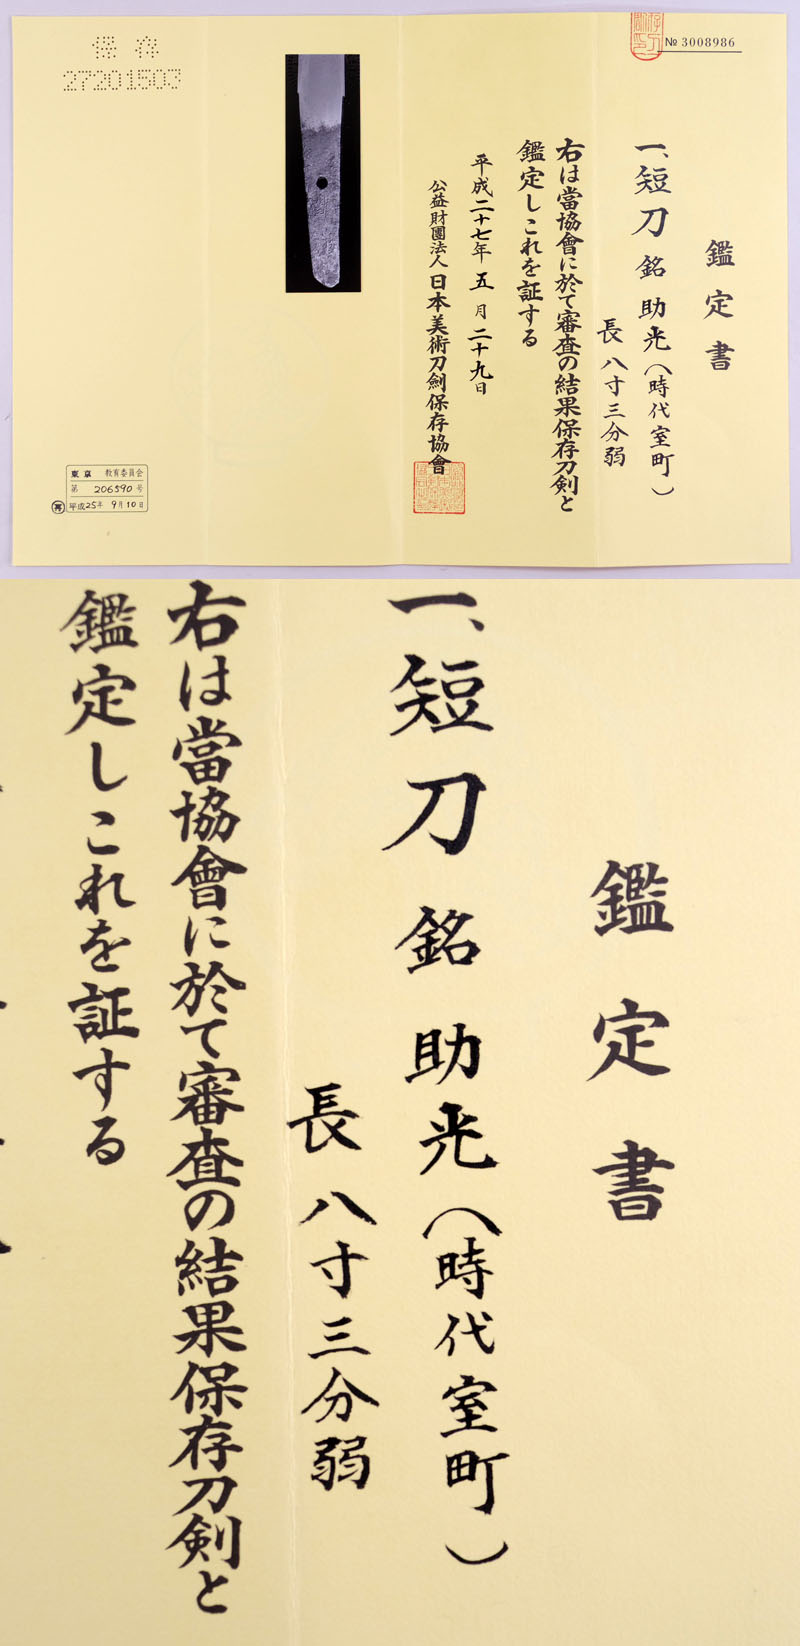 № 3008986
鑑定書
一、短刀 銘 助光（時代室町）
長 八寸三分弱
右は當協會に於て審査の結果保存刀剣と
鑑定しこれを証する
平成二十七年 五月 二十九日
公益財團法人 日本美術刀劍保存協會
保存
27201503
東京 教育委員会
第 206590 号
再 平成25年 9月10日
鑑定書
一、短刀 銘 助光（時代室町）
長 八寸三分弱
右は當協會に於て審査の結果保存刀剣と
鑑定しこれを証する